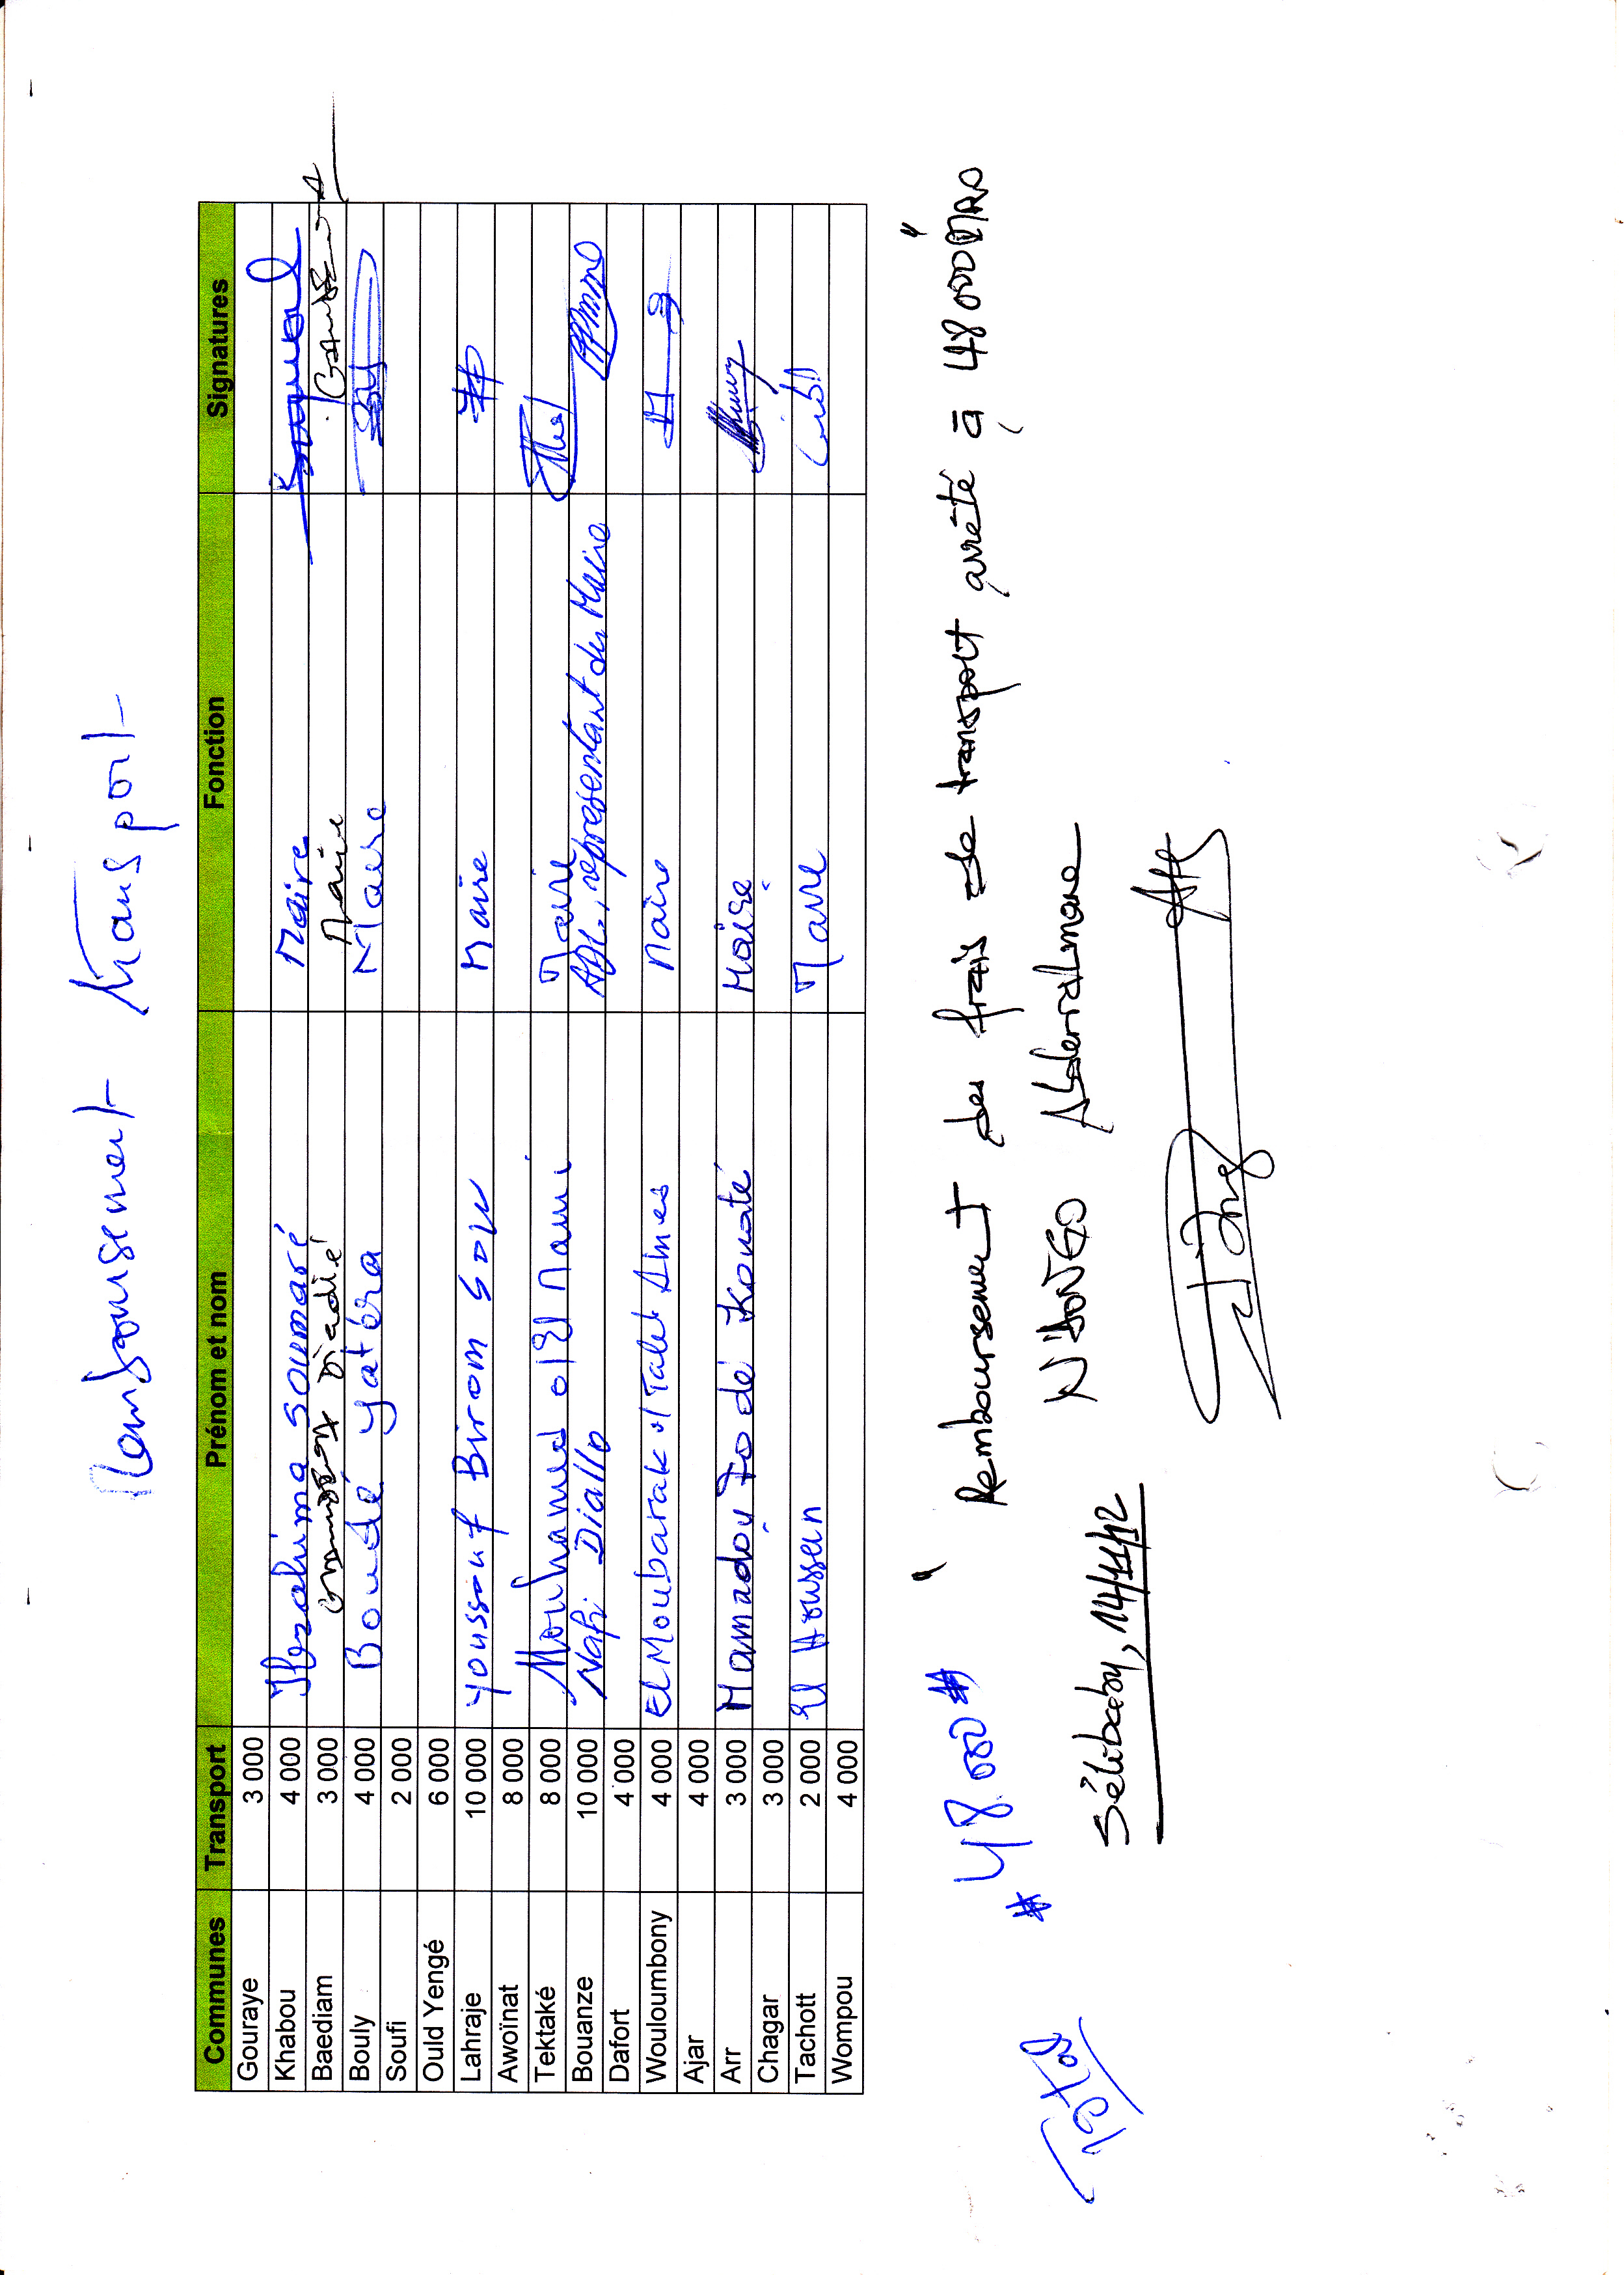 Remboursement transport
Communes Transport Prénom et nom Fonction Signatures
Gouraye 3 000
Khabou 4 000 Ibrahima Soumaré Maire
Baediam 3 000 Diadié Maire
Bouly 4 000 Boudé Yatéra Maire
Soufi 2 000
Ould Yengé 6 000
Lahraje 10 000 Youssouf Birom Sow Maire
Awoïnat 8 000
Tektaké 8 000 Mouhamed Maire
Bouanze 10 000 Nafi Diallo représentant du Maire
Dafort 4 000
Wouloumbony 4 000 El Moubarak Taleb Maire
Ajar 4 000
Arr 3 000 Mamadou Fodé Konaté Maire
Chagar 3 000
Tachott 2 000 El Houssein Maire
Wompou 4 000
Total # 48 000 # " Remboursement des frais de transport arrêté à 48 000 "
N'DONGO Abderrahmane
Sélibaby, 14/11/12